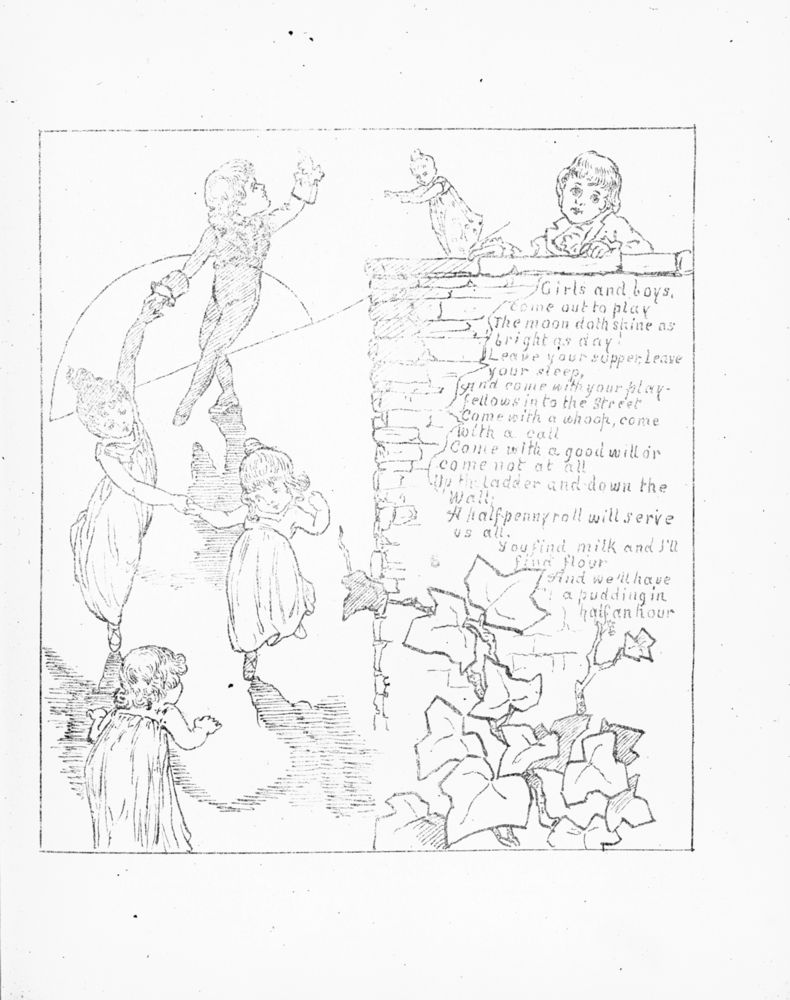 Girls and boys,
Come out to play
The moon doth shine as
bright as day!
Leave your supper, leave
your sleep,
And come with your play-
fellows into the Street
Come with a whoop, come
With a call
Come with a good will or
come not at all
Up the ladder and down the
Wall;
A halfpenny roll will serve
us all.
You find milk and I'll
find flour
And we'll have
a pudding in
half an hour